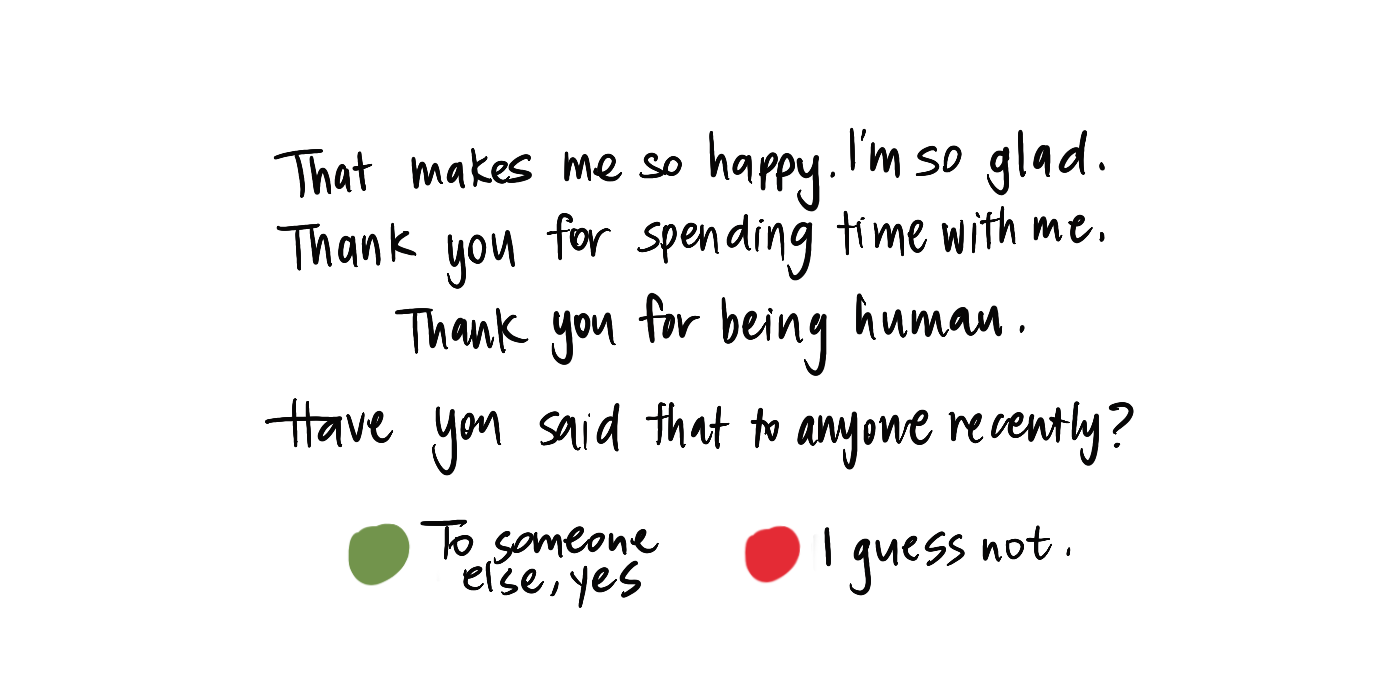 That makes me so happy. I'm so glad.
Thank you for spending time with me.
Thank you for being human.
Have you said that to anyone recently?
To someone
else, yes
I guess not.